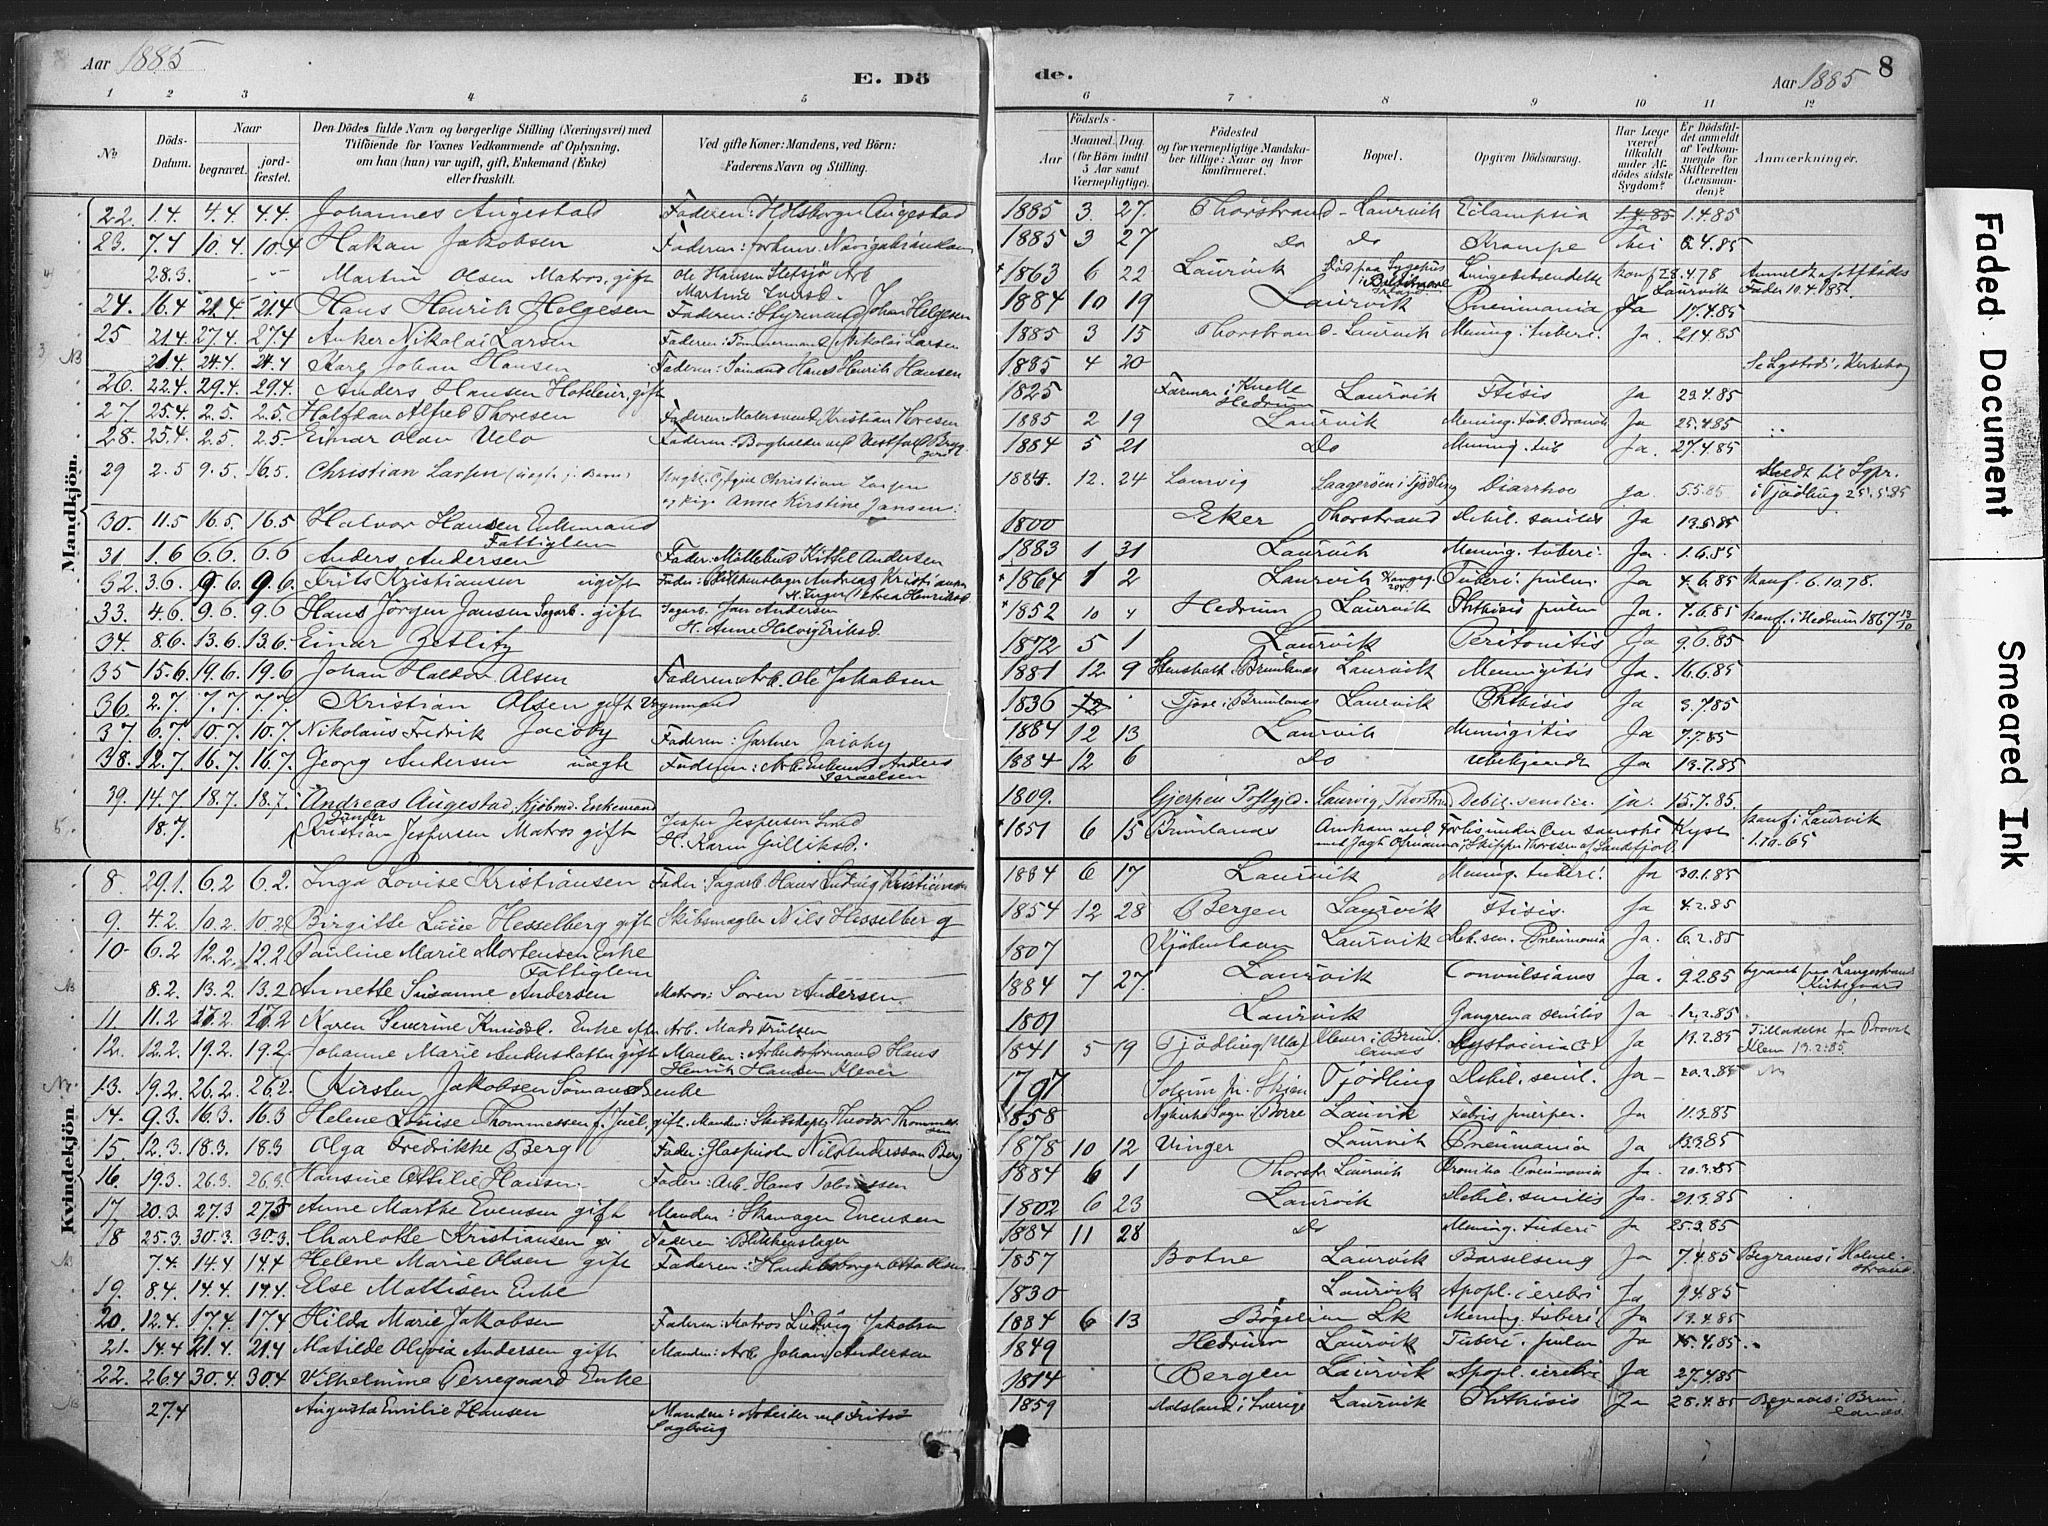 Aar 1885
E. Dö
de.
Aar 1885
8
1 2 3 4 5 6 7 8 9 10 11 12
No
Döds-Datum.
Naar
begravet.
jord-fæstet.
Den Dödes fulde Navn og borgerlige Stilling (Næringsvei) med
Tilföiende for Voxnes Vedkommende af Oplysning,
om han (hun) var ugift, gift, Enkemand (Enke)
eller fraskilt.
Ved gifte Koner: Mandens, ved Börn:
Faderens Navn og Stilling.
Födsels-
Aar
Maaned. Dag.
(for Börn indtil
5 Aar samt
Værnepligtige).
Födested
og for værnepligtige Mandska-
ber tillige: Naar og hvor
konfirmeret.
Bopæl.
Opgiven Dödsaarsag.
Har Læge
været
tilkaldt
under Af-
dödes sidste
Sygdom?
Er Dödsfal-
det anmeldt
af Vedkom-
mende for
Skifteretten
(Lensman-
den)?
Anmærkninger.
Mandkjön.
22. 1.4. 4.4. 4.4. Johannes Augestad Faderen: Augestad 1885 3. 27. Thorstrand - Laurvik Eclampsia Ja 1.4.85
23. 7.4 10.4. 10.4 Hakan Jakobsen Faderen: 1885 3 27 Do Do Krampe Nei 4.85
28.3. Martin Olsen Matros, gift Ole Hansen Arb. 1863 6 22 Laurvik konf 28.4.78
24. 16.4 21.4 21.4 Hans Henrik Helgesen Faderen: Styrmand Johan Helgesen 1884 10 19 Laurvik Pneumonia Ja 17.4.85
25 21.4 27.4 27.4 Anker Nikolai Larsen Faderen: Tömmermand Nikolai Larsen 1885 3 15 Thorstrand - Laurvik Mening. tuberc. Ja. 21.4.85
NB 21.4 24.4. 24.4 Karl Johan Hansen Faderen: Sömand Hans Henrik Hansen 1885 4 20
26. 22.4. 29.4. 29.4. Anders Hansen Hoteleier, gift 1825 Hedrum Laurvik Ftisis Ja 23.4.85
27 25.4. 2.5. 2.5. Halfdan Alfred Thoresen Faderen: Kristian Thoresen 1885 2 19 Laurvik Mening. tub. Ja 25.4.85
28. 25.4. 2.5. 2.5. Einar Olav Velo Faderen: Bogholder ved 1884 5 21 Do Mening. tub Ja. 27.4.85
29 2.5 9.5. 16.5. Christian Larsen Christian Larsen
og pige Anne Kirstine Jansen. 1884. 12. 24 Laurvig Laagerøen i Tjødling Diarrhoe Ja. 5.5.85 Meldt til Sgpr. i Tjødling 25.5.85
30. 11.5 16.5. 16.5 Halvor Hansen Enkemand
Fattiglem 1800 Eker Thorstrand Debil. senilis Ja 13.5.85
31 1.6 6.6. 6.6 Anders Andersen Fader: Kittel Andersen 1883 1 31 Laurvik Mening. tuberc. Ja. 1.6.85
32. 3.6. 9.6. 9.6. Frits Kristiansen ugift Fader: Blikkenslager Andreas Kristiansen 1864 1 2 Laurvik Tuberc. pulm Ja 4.6.85 Konf. 6.10.78.
33. 4.6. 9.6. 9.6 Hans Jörgen Jansen Sagarb. gift Sagarb. Jan Andersen
H. Anne Helvig Eriksd. 1852 10 4 Hedrum Laurvik Phthisis pulm Ja. 4.6.85 Konf. i Hedrum 1867 13/10
34. 8.6. 13.6. 13.6. Einar Zetlitz 1872 5 1 Laurvik Peritonitis Ja 9.6.85
35 15.6 19.6. 19.6 Johan Haldor Olsen Faderen: Arb. Ole Jakobsen 1881 12 9 Brunlanæs Laurvik Meningitis Ja. 16.6.85
36. 2.7. 7.7. 7.7. Kristian Olsen gift Vognmand 1836 Brunlanæs Laurvik Phthisis Ja 3.7.85
37 6.7. 10.7. 10.7. Nikolaus Fredrik Jacoby Faderen: Gartner Jacoby 1884 12 13 Laurvik Meningitis Ja 7.7.85
38. 12.7. 16.7. 16.7. Georg Andersen uægte Faderen: Anders Israelsen 1884 12 6 Do ubekjendt Ja 13.7.85
39. 14.7. 18.7. 18.7. Andreas Augestad, Kjöbmd. Enkemand 1809. Gjerpen Laurvig, Debil. senilis. ja. 15.7.85.
18.7. Kristian Jespersen Matros gift Jesper Jespersen Smed
H. Karen Gulliksd. 1851 6 15 Brunlanæs Konf. i Laurvik 1.10.65
Kvindekjön.
8. 29.1. 6.2 6.2. Inga Lovise Kristiansen Fader: Sagarb. Hans Ludvig Kristiansen 1884 6 17 Laurvik Mening. tuberc. Ja 30.1.85
9. 4.2. 10.2. 10.2 Birgitte Lucie Hesselberg gift Skibsmægler Nils Hesselberg 1854 12 28 Bergen Laurvik Ftisis. Ja 4.2.85
10 6.2 12.2. 12.2 Pauline Marie Mortensen Enke
Fattiglem 1807 Kjöbenhavn Laurvik Deb. sen. Pneumonia Ja. 6.2.85
8.2. 13.2. 13.2 Annette Susanne Andersen Matros: Sören Andersen. 1884 7 27. Laurvik Convulsiones Ja. 9.2.85 begravet paa Langestrands Kirkegaard
11. 11.2 17.2 17.2 Karen Severine Knudsd. Enke efter Arb. Mads Trulsen 1801 Laurvik Gangræna senilis Ja 12.2.85
12. 12.2. 19.2. 19.2. Johanne Marie Andersdatter gift Manden: Arbeidsformand Hans
Henrik Hansen Klever 1841 5 19 Tjödling (Ula) Ja 13.2.85 Tilladelse fra Provst Klem 13.2.85.
13. 19.2. 26.2. 26.2. Kirsten Jakobsen Sömandsenke 1797 Solum pr. Skien Tjödling Debil. senil. Ja 20.2.85
14. 9.3. 16.3. 16.3 Helene Louise Thommessen f. Juel, gift. Manden: Skibskapt. Theodor Thommessen 1858 Nykirke Sogn i Borre Laurvik Febris puerper. Ja 11.3.85
15. 12.3. 18.3. 18.3 Olga Fredrikke Berg Fader: Glaspuster Nils Andersson Berg 1878 10 12 Vinger Laurvik Pneumonia Ja 13.3.85
16. 19.3. 26.3. 26.3. Hansine Ottilie Hansen. Faderen: Arb. Hans Tobiassen 1884 6 1 Thorstr. Laurvik Pneumonia Ja. 20.3.85
17 20.3. 27.3 27.3 Anne Marthe Evensen gift Manden: Skomager Evensen 1802 6 23 Laurvik Debil. senilis Ja. 21.3.85
18 25.3. 30.3. 30.3. Charlotte Kristiansen Faderen: Blikkenslager 1884 11 28 Do Mening. tuberc. Ja 25.3.85
7.4. 14.4 14.4 Helene Marie Olsen gift Faderen: Handelsborger Otto Olsen 1857 Botne Laurvik Barselseng Ja 7.4.85 Begraves i Holmestrand.
19. 8.4. 14.4. 14.4. Else Mattisen Enke 1830 Laurvik Apopl. cerebri Ja 9.4.85
20. 12.4. 17.4. 17.4 Hilda Marie Jakobsen Faderen: Matros Ludvig Jakobsen 1884 6 13 Lk Mening. tuberc. Ja 13.4.85
21. 14.4 21.4. 21.4 Matilde Olivia Andersen gift Manden: Arb. Johan Andersen 1849 Hedrum Laurvik Tuberc. pulm Ja 15.4.85
22. 26.4 30.4. 30.4 Vilhelmine Terregaard Enke 1814 Bergen Laurvik Apopl. cerebri Ja 27.4.85
27.4 Augusta Emilie Hansen Manden: Arbeider ved Fritzö
Sagbrug 1859 Dalsland i Sverige Laurvik Phthisis Ja 28.4.85 Begraves i Brunlanæs.
Faded Document
Smeared Ink